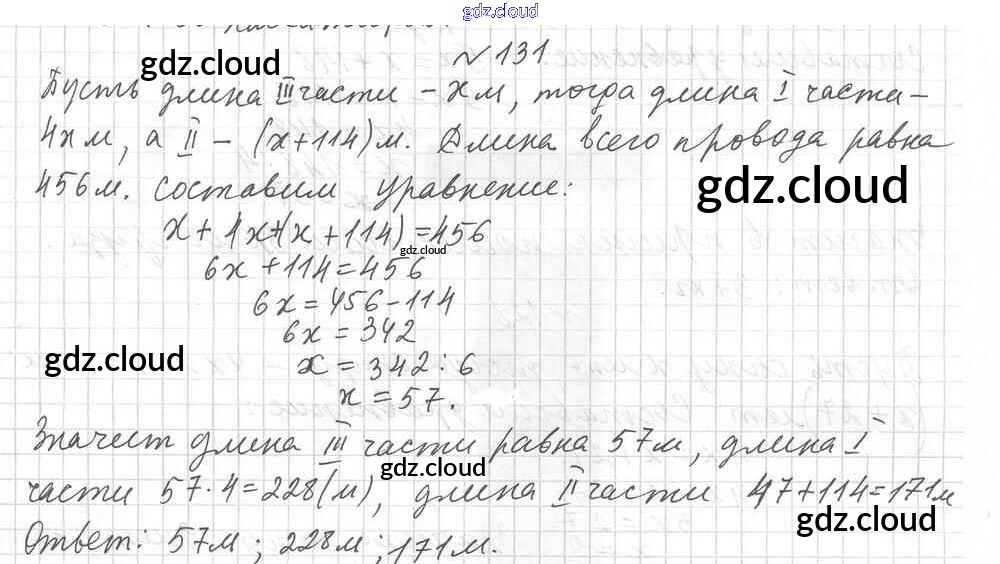 gdz.cloud
№131
gdz.cloud
Пусть длина III части – х м, тогда длина I части –
4х м, а II – (х+114) м. Длина всего провода равна
456 м. Составим уравнение:
gdz.cloud
х + 4х+(х + 114) = 456
gdz.cloud
6х + 114 = 456
6х = 456 – 114
6х = 342
gdz.cloud
х = 342 : 6
х = 57.
Значест длина III части равна 57 м, длина I
gdz.cloud
части 57 · 4 = 228 (м), длина II части 47 + 114 = 171 м
gdz.cloud
Ответ: 57 м; 228 м; 171 м.
gdz.cloud